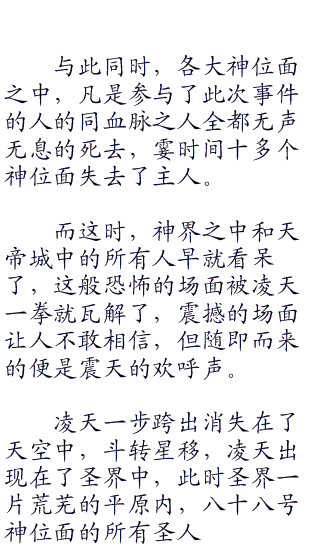 与此同时，各大神位面
之中，凡是参与了此次事件
的人的同血脉之人全都无声
无息的死去，霎时间十多个
神位面失去了主人。
而这时，神界之中和天
帝城中的所有人早就看呆
了，这般恐怖的场面被凌天
一拳就瓦解了，震撼的场面
让人不敢相信，但随即而来
的便是震天的欢呼声。
凌天一步跨出消失在了
天空中，斗转星移，凌天出
现在了圣界中，此时圣界一
片荒芜的平原内，八十八号
神位面的所有圣人